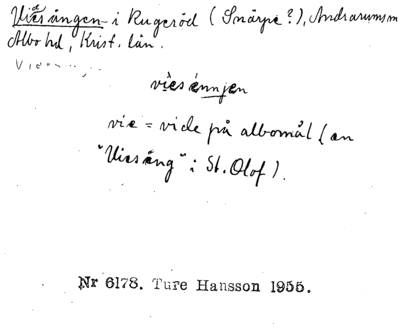 Viesängen i Rugeröd (Snärpe?), Andrarums sn
Albo hd, Krist. län.
viesénnjen
vie = vide på albomål (en
"Viesäng" i St. Olof).
Nr 6178. Ture Hansson 1955.